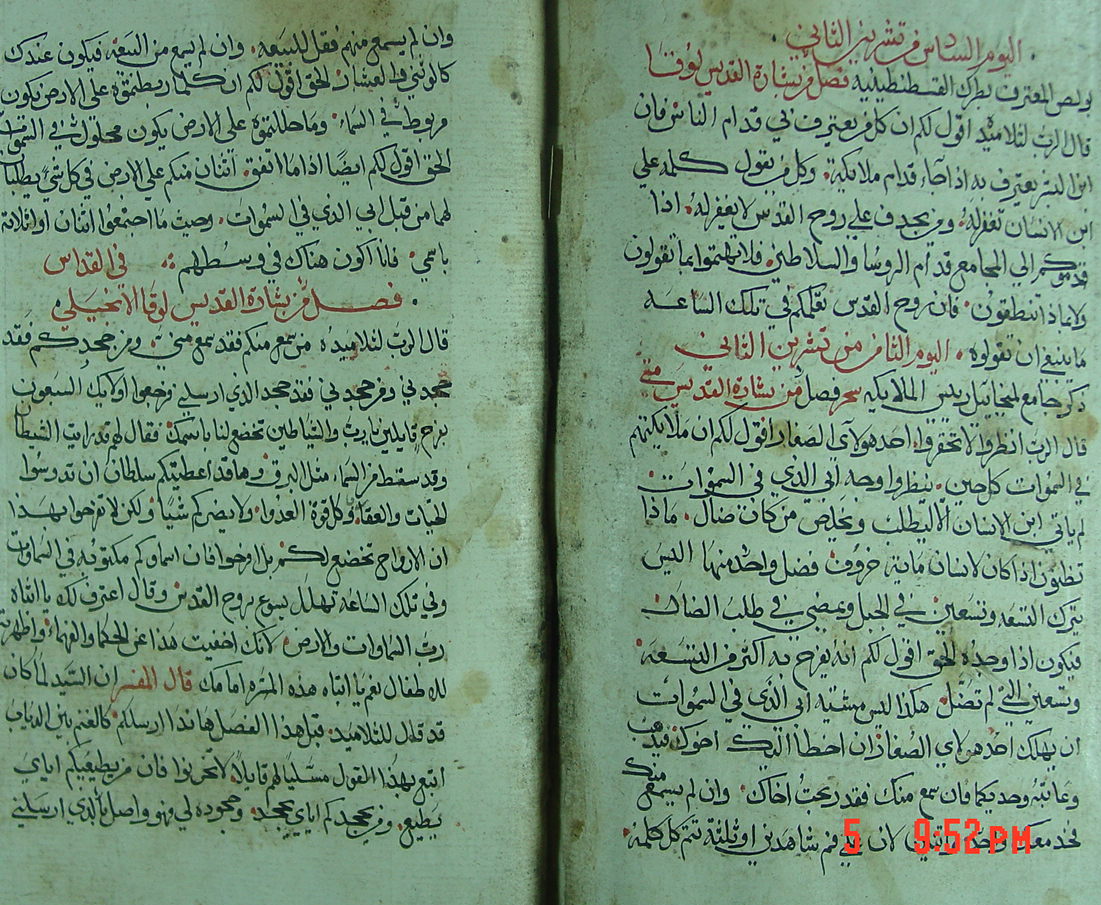 اليوم السادس من تشرين الثاني
بولص المعترف بطرك القسطنطينية فصل من بشارة القديس لوقا
قال الرب لتلاميذه اقول لكم ان كل من يعترف بي قدام الناس فان
ابن البشر يعترف به اذا جآء قدام ملايكته. وكل من يقول كلمه علي
ابن الانسان تغفر له. ومن يجدف علي روح القدس لا يغفر له. اذا
قدموكم الي المجامع قدام الروسا والسلاطين. فلا تهتموا بما تقولون
ولا بماذا تنطقون. فان روح القدس تعلمكم في تلك الساعه
ما ينبغي ان تقولوه. اليوم الثامن من تشرين الثاني
ذكر جامع لميخاييل ريس الملايكه سحر فصل من بشارة القديس متي
قال الرب انظروا لا تحقروا احد هولآي الصغار اقول لكم ان ملايكتهم
في السموات كل حين. ينظروا وجه ابي الذي في السموات
لم ياتي ابن الانسان الا ليطلب ويخلص من كان ضال. ماذا
تظنون اذا كان لانسان ماية خروف فضل واحد منها اليس
يترك التسعه وتسعين في الجبل ويمضي في طلب الضال
فيكون اذا وجده الحق اقول لكم انه يفرح به اكثر من التسعه
وتسعين التي لم تضل. هكذا ليس مشية ابي الذي في السموات
ان يهلك احد هولاي الصغار ان اخطا اليك اخوك فيذهب
وعاتبه وحديكما فان سمع منك فقد ربحت اخاك. وان لم يسمع منك
فخد معك واحد واثنين لان علي فم شاهدين او ثلثة تتم كل كلمة.
5 9:52PM
وان لم يسمع منهم فقل للبيعه. وان لم يسمع من البيعه فيكون عندك
كالوثني والعشار الحق اقول لكم ان كلما ربطتموه علي الارض يكون
مربوط في السماء. وما حللتموه علي الارض يكون محلول في السموات
الحق اقول لكم ايضًا اذا ما اتفق اثنان منكم علي الارض في كل شي يطلبان
لهما من قبل ابي الذي في السموات. وحيث ما اجتمعوا اثنان او ثلاثة
باسمي. فانا اكون هناك في وسطهم. في القداس
فصل من بشارة القديس لوقا الانجيلي
قال الرب لتلاميذه من سمع منكم فقد سمع مني. ومن جحدكم فقد
جحدني ومن جحدني فقد جحد الذي ارسلني فرجعوا اوليك السبعون
بفرح قايلين يا رب والشياطين تخضع لنا باسمك فقال لهم قد رايت الشيطان
وقد سقط من السماء مثل البرق وها قد اعطيتكم سلطان ان تدوسوا
الحيات والعقارب وكل قوة العدوا. ولا يضركم شيًا ولكن لا تفرحوا بهذا
ان الارواح تخضع لكم بل افرحوا فان اسماوكم مكتوبه في السماوات
وفي تلك الساعه تهلل يسوع بروح القدس وقال اعترف لك يا ابتاه
رب السماوات والارض. لانك اخفيت هذا عن الحكما والفهماء واظهرته
للاطفال نعم يا ابتاه هذه المسره امامك قال المفسر ان السيد لما كان
قد قال للتلاميذ. قبل هذا الفصل هاندا ارسلكم كالغنم بين الدياب
اتبع بهذا القول مسليًا لهم قايلا. لا تحزنوا فان من يطيعكم اياي
يطيع. ومن يجحدكم اياي يجحد. وجحوده لي فهو واصل بالذي ارسلني